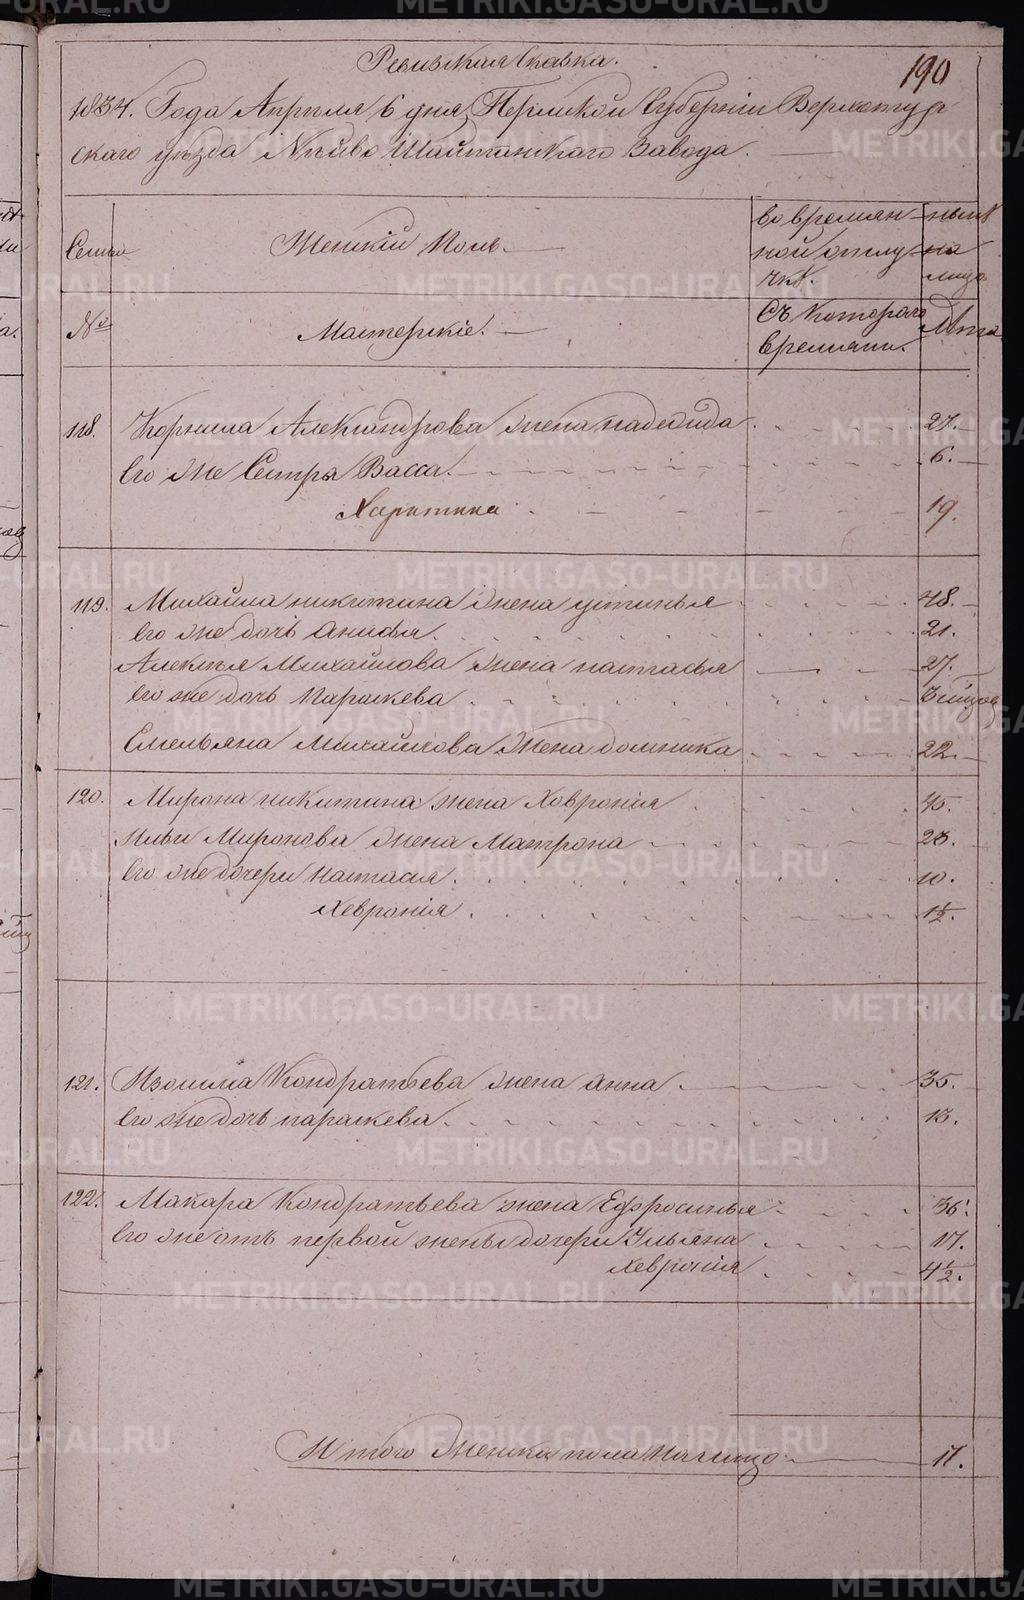 Ревизская Сказка.
190
1834. Года Апреля 6 дня, Пермской Губернии Верхотур
скаго уезда Нейво Шайтанскаго Завода.
Семьи
Женский Полъ.
во времян
ной отлу
чке.
ныне
на
лицо
№
Мастерские.
Съ котораго
времяни.
Лета
118. Корнила Александрова жена надежда 27.
Его же Сестры Васса 6.
Харитина 19.
119. Михайла никитина жена устинья 48.
Его же дочь анисья 21.
Алексея Михайлова жена настасья 27.
Его же дочь Параскева
Емельяна Михайлова жена домника 22.
120. Мирона никитина жена Ховронія 45.
Ильи Миронова жена Матрона 28.
Его же дочери настасія 10.
Хевронія 1½.
121. Изосима Кондратьева жена анна 35.
Его же дочь параскева 13.
122. Макара Кондратьева жена Ефросинья 36.
Его же отъ первой жены дочери Ульяна 17.
Хевронія 4½.
Итого Женска пола налицо 17.
METRIKI.GASO-URAL.RU